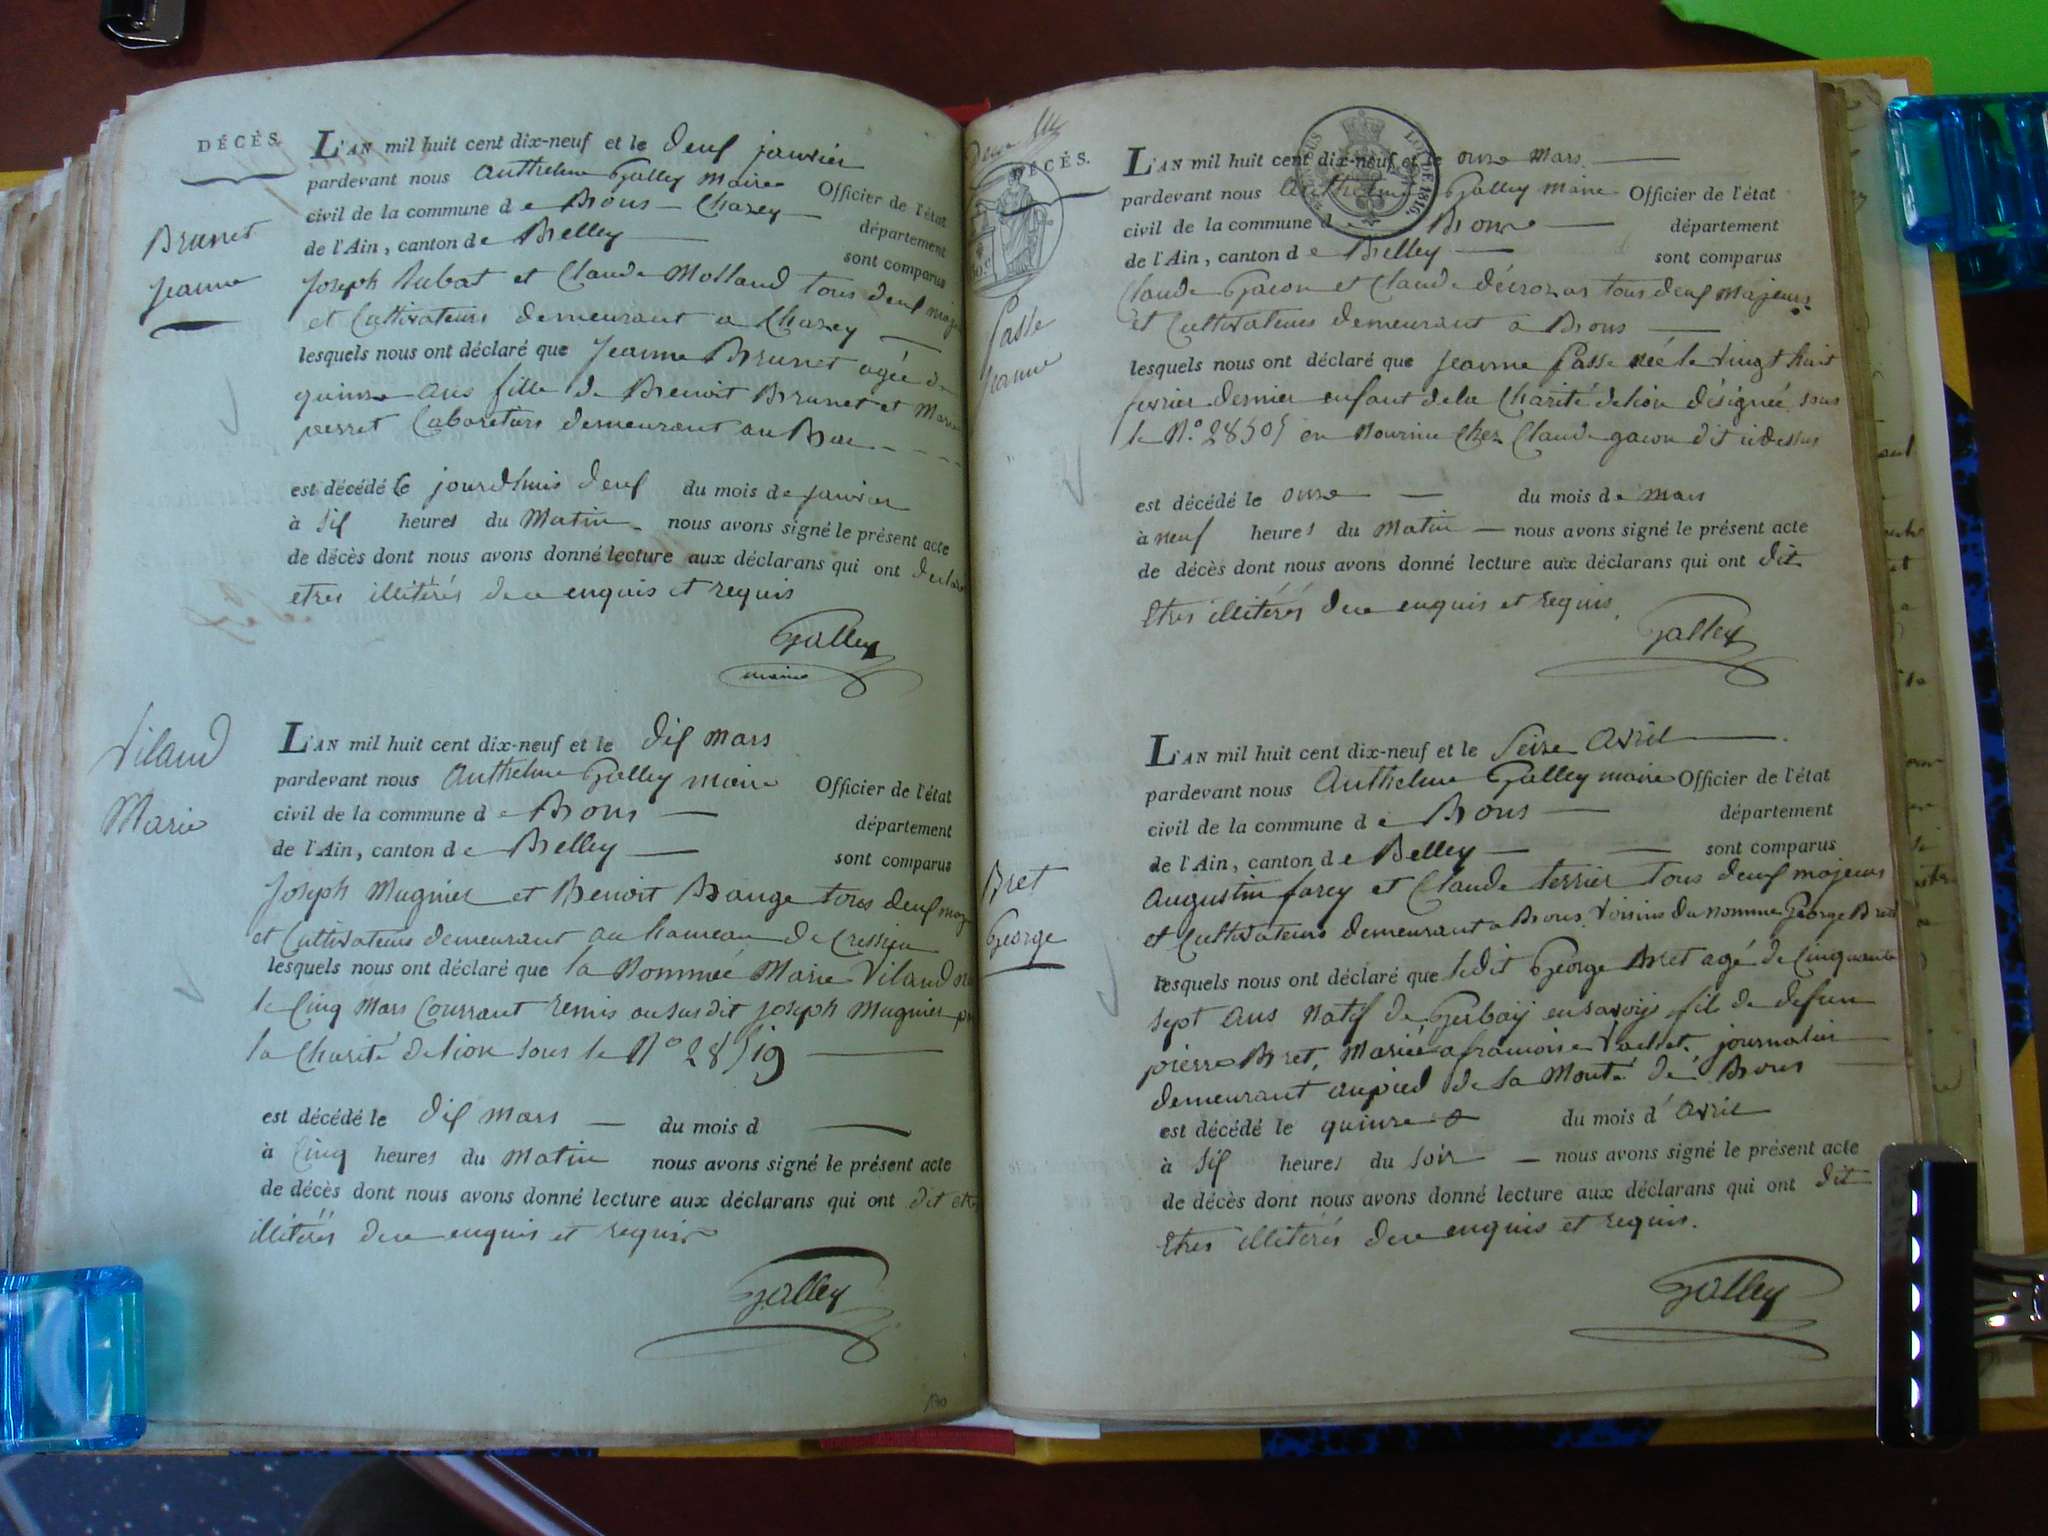 DÉCÈS.
Brunet
Jeanne
L'AN mil huit cent dix-neuf et le deux janvier
pardevant nous Anthelme Galley Maire Officier de l'état
civil de la commune de Brens — Chazey — département
de l'Ain, canton de Belley — sont comparus
Joseph Lubat et Claude Molland tous deux
et Cultivateurs demeurant a Chazey —
lesquels nous ont déclaré que Jeanne Brunet agée de
quinze ans fille de Benoit Brunet et Marie
perret Cabaretiers demeurant au Bac
est décédé le jourdhuis deux du mois de janvier
à Six heures du Matin nous avons signé le présent acte
de décès dont nous avons donné lecture aux déclarans qui ont
etres illitérés de ce enquis et requis
Galley
maire
Vilaud
Marie
L'AN mil huit cent dix-neuf et le dix mars
pardevant nous Anthelme Galley maire Officier de l'état
civil de la commune de Brens — département
de l'Ain, canton de Belley — sont comparus
Joseph Mugnier et Benoit Bauge tous deux
et Cultivateurs demeurant au hameau de Cressieu
lesquels nous ont déclaré que la Nommée Marie Vilaud
le Cinq Mars Courrant remis au susdit joseph Mugnier
la Charité de lion sous le N° 28519 —
est décédé le dix mars — du mois d —
à Cinq heures du Matin nous avons signé le présent acte
de décès dont nous avons donné lecture aux déclarans qui ont dit
illitérés de ce enquis et requis
Galley
DÉCÈS.
LOI DE 1816.
Passe
jeanne
L'AN mil huit cent dix-neuf et le onze mars —
pardevant nous Anthelme Galley maire Officier de l'état
civil de la commune de Brens — département
de l'Ain, canton de Belley — sont comparus
Claude Gacon et Claude décrozas tous deux Majeurs
et Cultivateurs demeurant a Brens —
lesquels nous ont déclaré que jeanne passe née le vingt huit
fevrier dernier enfant de la Charité de lion désignée sous
le N° 28505 en Nourrice Chez Claude gacon dit cidessus
est décédé le onze — du mois de mars
à neuf heures du Matin — nous avons signé le présent acte
de décès dont nous avons donné lecture aux déclarans qui ont dit
Etres illitérés de ce enquis et requis.
Galley
Bret
George
L'AN mil huit cent dix-neuf et le Seize Avril —
pardevant nous Anthelme Galley maire Officier de l'état
civil de la commune de Brens — département
de l'Ain, canton de Belley — — sont comparus
Augustin farcy et Claude terrier tous deux majeurs
et Cultivateurs demeurant a Brens. Voisins du nomme George Bret
lesquels nous ont déclaré que ledit George Bret agé de Cinquante
sept ans Natif de Gerbaix en savoye fils de defun
pierre Bret, Mariée a francoise Vachet. journalier
demeurant au pied de la Monté de Brens
est décédé le quinze du mois d'avril
à Six heures du soir — nous avons signé le présent acte
de décès dont nous avons donné lecture aux déclarans qui ont dit
Etres illitérés de ce enquis et requis.
Galley